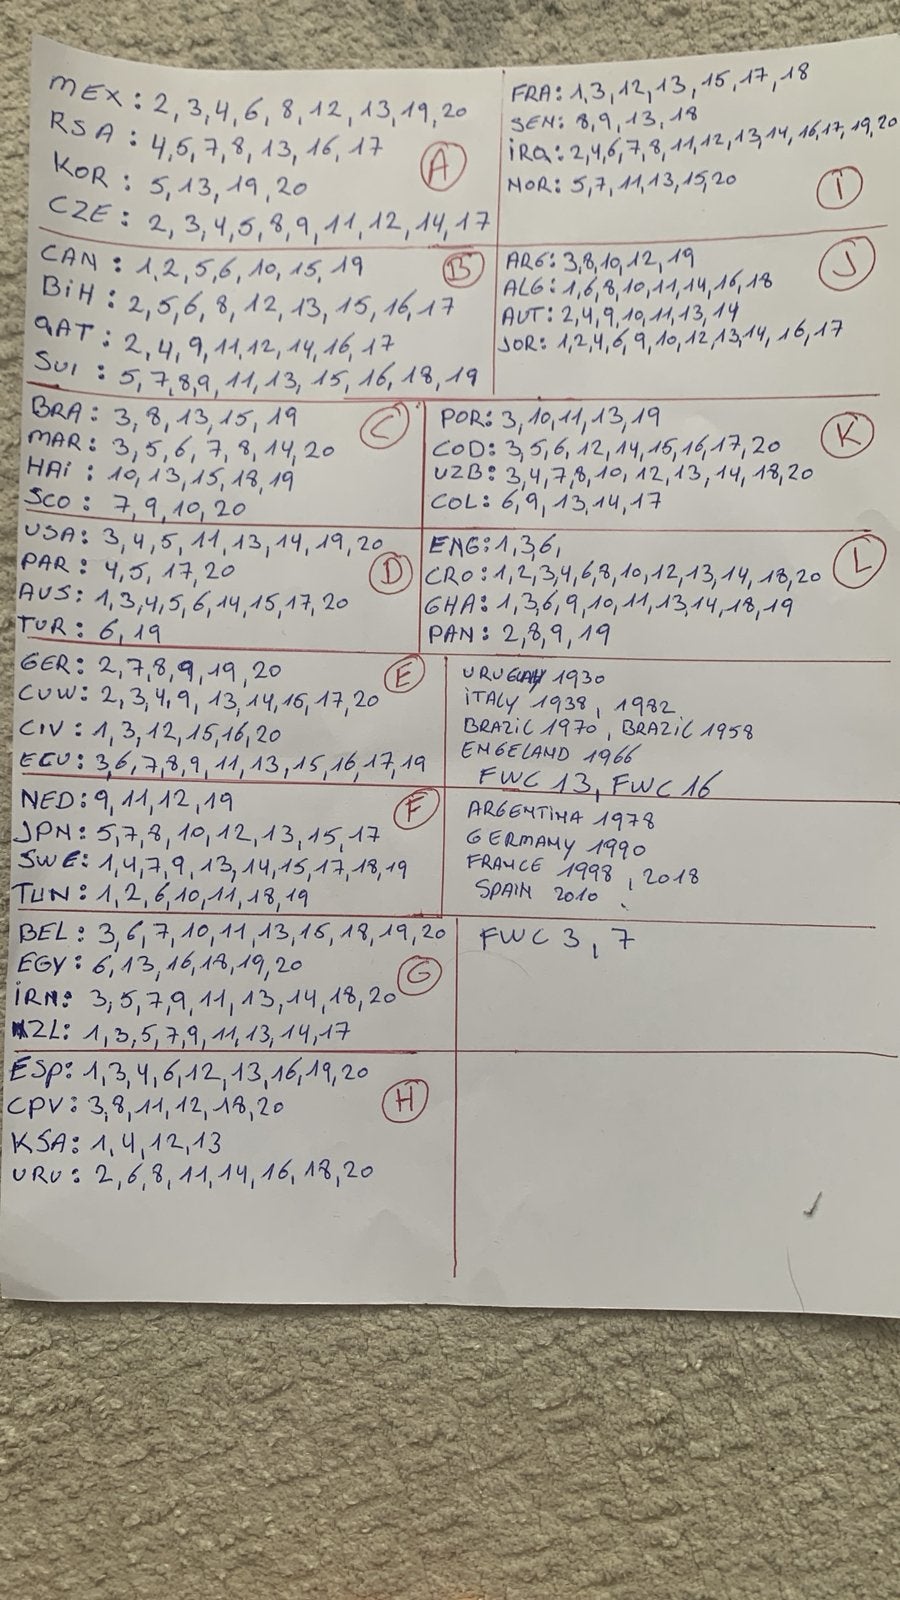 MEX: 2, 3, 4, 6, 8, 12, 13, 19, 20
RSA: 4, 5, 7, 8, 13, 16, 17
KOR: 5, 13, 19, 20
CZE: 2, 3, 4, 5, 8, 9, 11, 12, 14, 17
A
CAN: 1, 2, 5, 6, 10, 15, 19
BiH: 2, 5, 6, 8, 12, 13, 15, 16, 17
QAT: 2, 4, 9, 11, 12, 14, 16, 17
SUI: 5, 7, 8, 9, 11, 13, 15, 16, 18, 19
B
BRA: 3, 8, 13, 15, 19
MAR: 3, 5, 6, 7, 8, 14, 20
HAi: 10, 13, 15, 18, 19
SCO: 7, 9, 10, 20
C
USA: 3, 4, 5, 11, 13, 14, 19, 20
PAR: 4, 5, 17, 20
AUS: 1, 3, 4, 5, 6, 14, 15, 17, 20
TUR: 6, 19
D
GER: 2, 7, 8, 9, 19, 20
CUW: 2, 3, 4, 9, 13, 14, 15, 17, 20
CIV: 1, 3, 12, 15, 16, 20
ECU: 3, 6, 7, 8, 9, 11, 13, 15, 16, 17, 19
E
NED: 9, 11, 12, 19
JPN: 5, 7, 8, 10, 12, 13, 15, 17
SWE: 1, 4, 7, 9, 13, 14, 15, 17, 18, 19
TUN: 1, 2, 6, 10, 11, 18, 19
F
BEL: 3, 6, 7, 10, 11, 13, 15, 18, 19, 20
EGY: 6, 13, 16, 18, 19, 20
iRN: 3, 5, 7, 9, 11, 13, 14, 18, 20
NZL: 1, 3, 5, 7, 9, 11, 13, 14, 17
G
ESP: 1, 3, 4, 6, 12, 13, 16, 19, 20
CPV: 3, 8, 11, 12, 18, 20
KSA: 1, 4, 12, 13
URU: 2, 6, 8, 11, 14, 16, 18, 20
H
FRA: 1, 3, 12, 13, 15, 17, 18
SEN: 8, 9, 13, 18
iRQ: 2, 4, 6, 7, 8, 11, 12, 13, 14, 16, 17, 19, 20
NOR: 5, 7, 11, 13, 15, 20
I
ARG: 3, 8, 10, 12, 19
ALG: 1, 6, 8, 10, 11, 14, 16, 18
AUT: 2, 4, 9, 10, 11, 13, 14
JOR: 1, 2, 4, 6, 9, 10, 12, 13, 14, 16, 17
J
POR: 3, 10, 11, 13, 19
COD: 3, 5, 6, 12, 14, 15, 16, 17, 20
UZB: 3, 4, 7, 8, 10, 12, 13, 14, 18, 20
COL: 6, 9, 13, 14, 17
K
ENG: 1, 3, 6,
CRO: 1, 2, 3, 4, 6, 8, 10, 12, 13, 14, 18, 20
GHA: 1, 3, 6, 9, 10, 11, 13, 14, 18, 19
PAN: 2, 8, 9, 19
L
URUGUAY 1930
iTALY 1938, 1982
BRAZiL 1970, BRAZiL 1958
ENGELAND 1966
FWC 13, FWC 16
ARGENTINA 1978
GERMANY 1990
FRANCE 1998, 2018
SPAIN 2010
FWC 3, 7